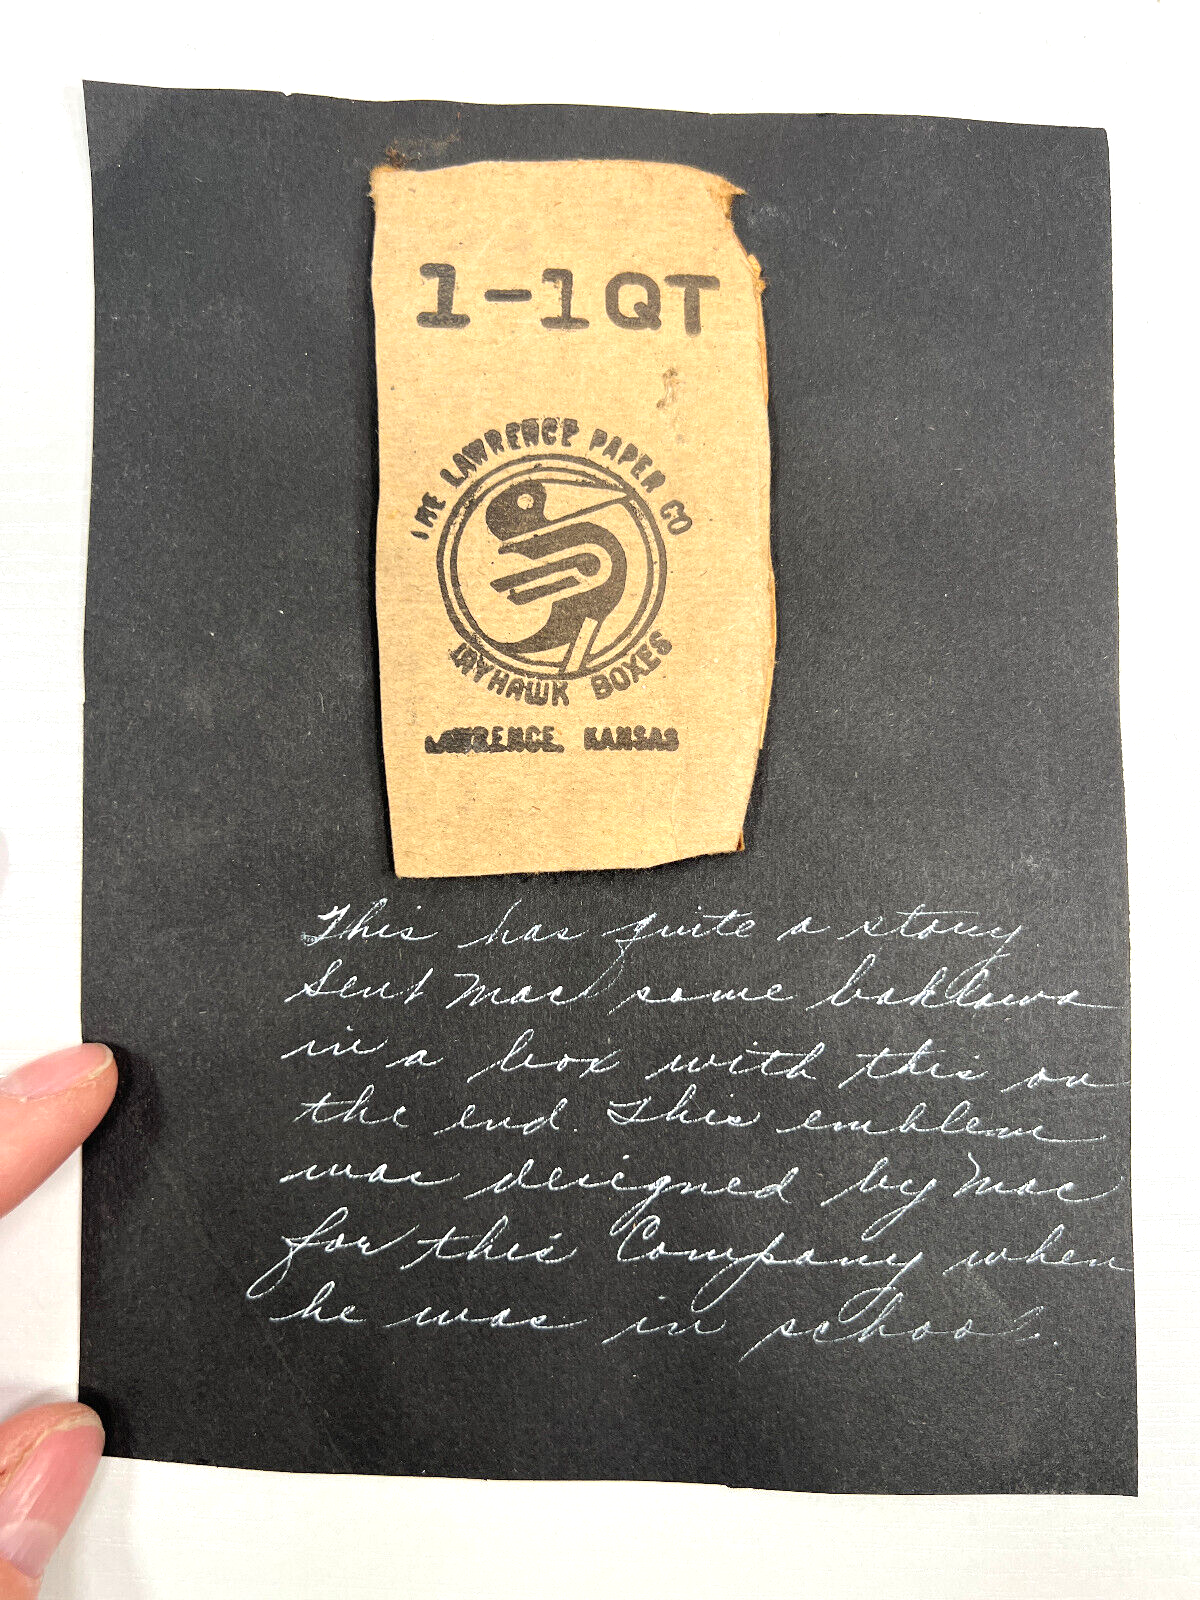 1-1QT
THE LAWRENCE PAPER CO
JAYHAWK BOXES
LAWRENCE, KANSAS
This has quite a story
Sent Mac some baklava
in a box with this on
the end. This emblem
was designed by Mac
for this Company when
he was in school.